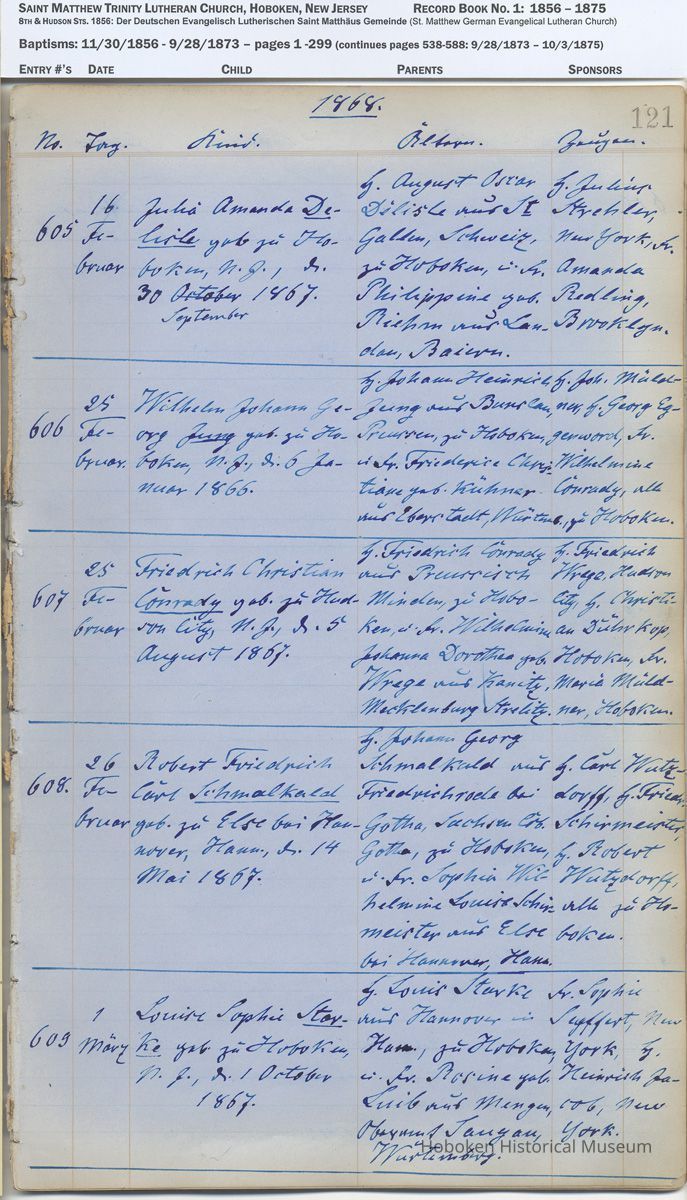 SAINT MATTHEW TRINITY LUTHERAN CHURCH, HOBOKEN, NEW JERSEY RECORD BOOK NO. 1: 1856 – 1875
8TH & HUDSON STS. 1856: Der Deutschen Evangelisch Lutherischen Saint Matthäus Gemeinde (St. Matthew German Evangelical Lutheran Church)
Baptisms: 11/30/1856 - 9/28/1873 – pages 1 -299 (continues pages 538-588: 9/28/1873 – 10/3/1875)
ENTRY #'S DATE CHILD PARENTS SPONSORS
1868.
121
No. Tag. Kind. Ältern. Zeugen.
605
16
Fe-
bruar
Julia Amanda De-
lisle geb. zu Ho-
boken, N. J., d.
30 October 1867.
September
H. August Oscar
Délisle aus St
Gallen, Schweiz,
zu Hoboken, u. Fr.
Philippine geb.
Riehm aus Lan-
dau, Baiern.
H. Julius
Strehler,
New York, Fr.
Amanda
Redling,
Brooklyn.
606
25
Fe-
bruar.
Wilhelm Johann Ge-
org Jung geb. zu Ho-
boken, N. J., d. 6 Ja-
nuar 1866.
H. Johann Heinrich
Jung aus Bunslau,
Preussen, zu Hoboken,
u. Fr. Friederice Chris-
tiane geb. Kühner
aus Eberstadt, Würtmb.,
H. Joh. Müld-
ner, H. Georg Eg-
genword, Fr.
Wilhelmine
Conrady, alle
zu Hoboken.
607
25
Fe-
bruar
Friedrich Christian
Conrady geb. zu Hud-
son City, N. J., d. 5
August 1867.
H. Friedrich Conrady
aus Preussisch
Minden, zu Hobo-
ken, u. Fr. Wilhelmine
Johanna Dorothea geb.
Wrege aus Kanitz,
Mecklenburg Strelitz.
H. Friedrich
Wrege, Hudson
City, H. Christi-
an Dührkop,
Hoboken, Fr.
Maria Müld-
ner, Hoboken.
608.
26
Fe-
bruar
Robert Friedrich
Carl Schmalkald
geb. zu Else bei Han-
nover, Hann., d. 14
Mai 1867.
H. Johann Georg
Schmalkald aus
Friedrichrode bei
Gotha, Sachsen Cob.
Gotha, zu Hoboken,
u. Fr. Sophia Wil-
helmine Louise Schir-
meister aus Else
bei Hannover, Hann.
H. Carl Wutz-
dorff, H. Friedr.
Schirmeister,
H. Robert
Wutzdorff,
alle zu Ho-
boken.
609
1
März
Louise Sophie Star-
ke geb. zu Hoboken,
N. J., d. 1 October
1867.
H. Louis Starke
aus Hannover in
Hann., zu Hoboken,
u. Fr. Rosine geb.
Luib aus Mengen,
Oberamt Saugau,
Würtemberg.
Fr. Sophie
Seyffert, New
York, H.
Heinrich Ja-
cob, New
York.
Hoboken Historical Museum